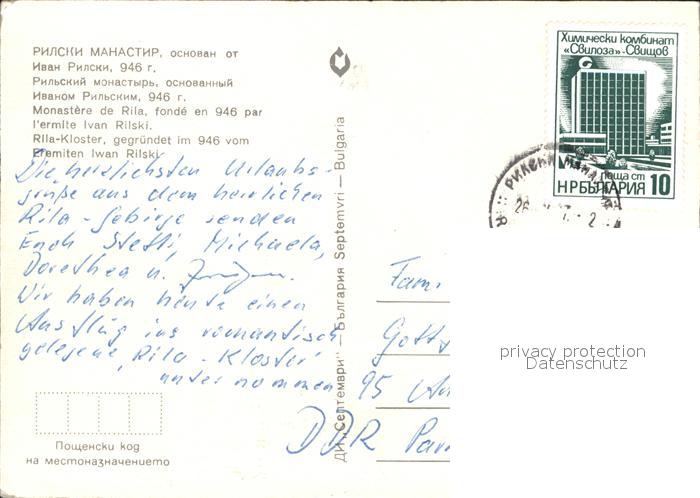 РИЛСКИ МАНАСТИР, основан от
Иван Рилски, 946 г.
Рильский монастырь, основанный
Иваном Рильским, 946 г.
Monastère de Rila, fondé en 946 par
l'ermite Ivan Rilski.
Rila-Kloster, gegründet im 946 vom
Eremiten Iwan Rilski
Die herzlichsten Urlaubs-
grüße aus dem herrlichen
Rila-Gebirge senden
Euch Steffi, Michaela,
Dorothea u.
Wir haben heute einen
Ausflug ins romantisch
gelegene „Rila-Kloster"
unternommen
Пощенски код
на местоназначението
ДИ „Септември" — България Septemvri — Bulgaria
Химически комбинат
«Свилоза»-Свищов
поща ст
НР БЪЛГАРИЯ 10
РИЛСКИ МАНА
Fam.
Gotts
95
DDR
privacy protection
Datenschutz